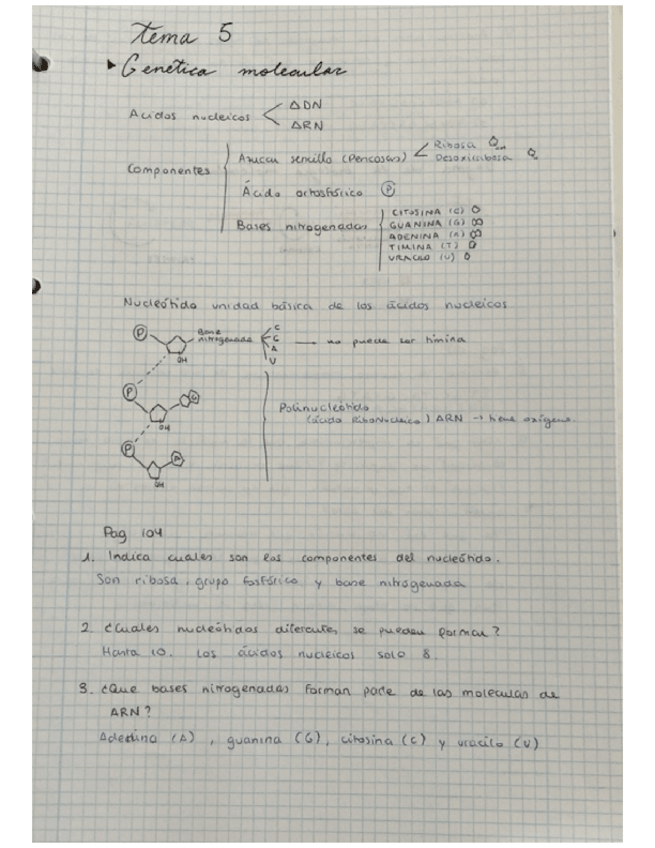 Tema 5
Genética molecular
Acidos nucleicos
ADN
ARN
Componentes
Azucar sencillo (Pencosas)
Ribosa
Desoxirribosa
Ácido ortofosfórico P
Bases nitrogenadas
CITOSINA (C)
GUANINA (G)
ADENINA (A)
TIMINA (T)
URACILO (U)
Nucleótido unidad básica de los ácidos nucleicos
P
Base nitrogenada
C
G
A
U
no puede ser timina
OH
P
G
OH
P
OH
Polinucleótido
(ácido RiboNucleico) ARN → tiene oxígeno.
Pag 104
1. Indica cuales son los componentes del nucleótido.
Son ribosa, grupo fosfórico y base nitrogenada
2. ¿Cuales nucleótidos diferentes se pueden formar?
Hasta 10. Los ácidos nucleicos solo 8.
3. ¿Que bases nitrogenadas forman parte de las moleculas de
ARN?
Adedina (A), guanina (G), citosina (C) y uracilo (U)